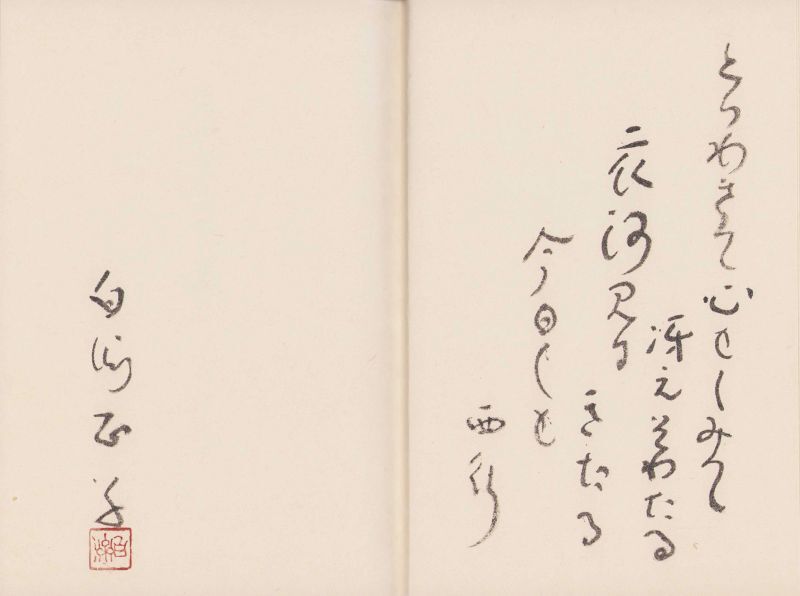 とりわきて心もしみて
冴えそわたる
衣河見に
きたる
今日しも
西行
白洲正子